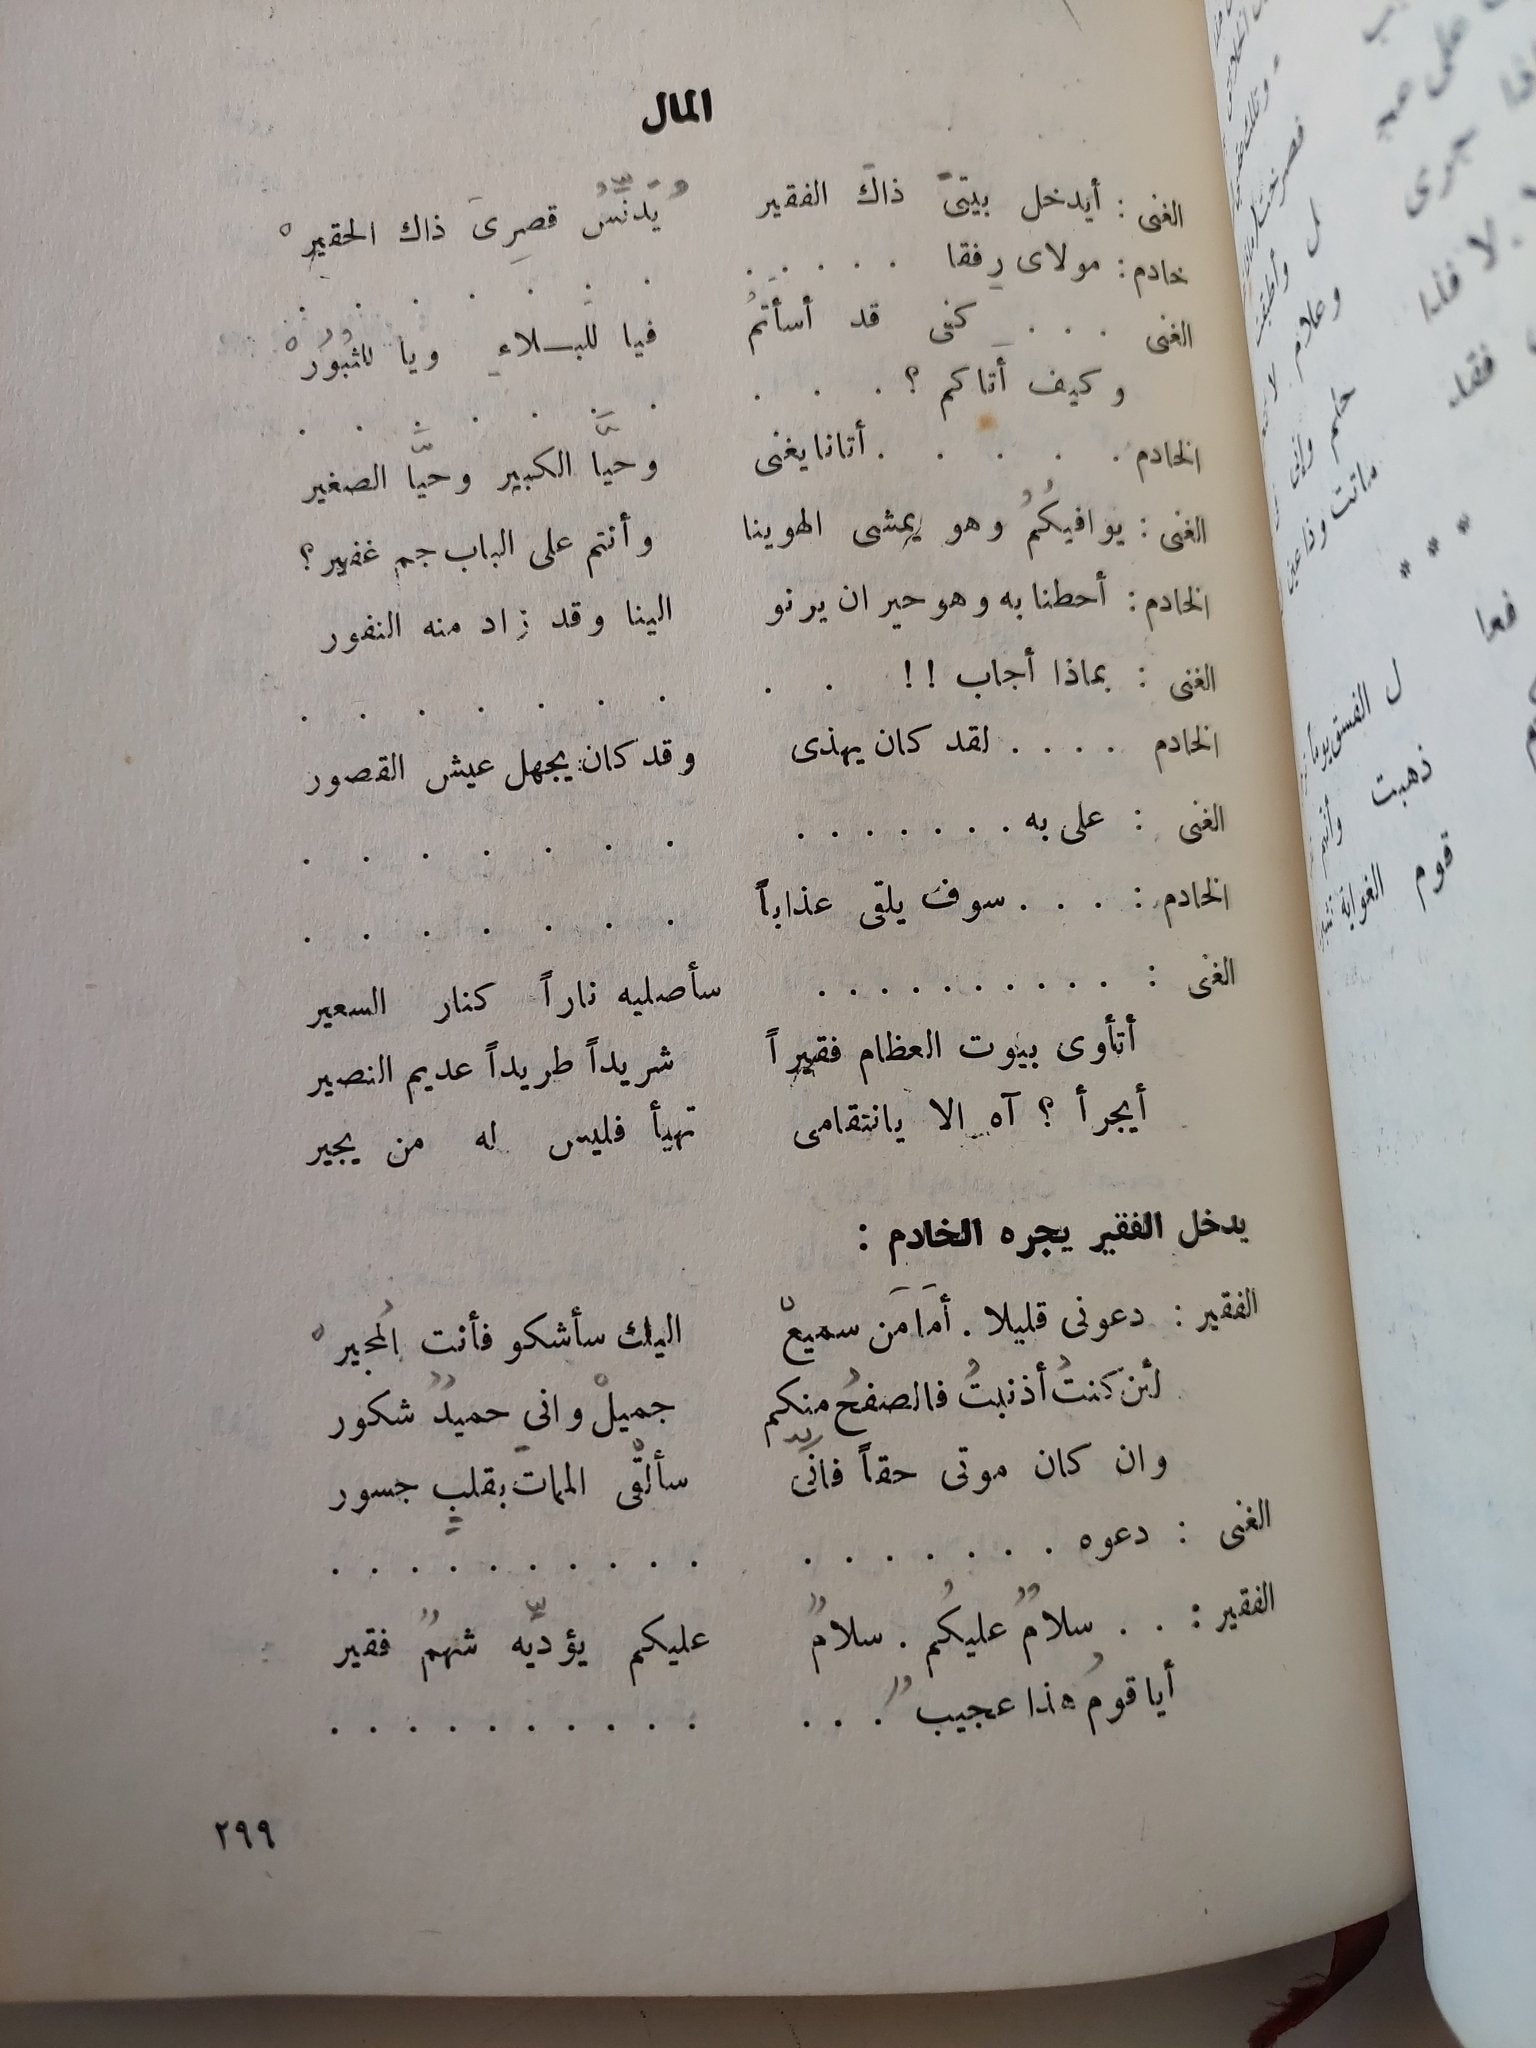 المال
الغنى : أيدخل بيتىَ ذاكَ الفقير يُدَنِّسُ قصرِىَ ذاك الحقيرْ
خادم : مولاى رِفقا . . . . . . . . . . . . .
الغنى . . . كفى قد أسأتمُ فيا للَبـلاءِ ويا للثبُورْ
وكيف أتاكم ؟ . . . . . . . . . .
الخادم . . . . . أتانا يغنى وحيَّا الكبير وحيَّا الصغير
الغنى : يوافيكُمُ وهو يمشى الهوينا وأنتم على الباب جم غفير ؟
الخادم : أحطنا به وهو حيران يرنو الينا وقد زاد منه النفور
الغنى : بماذا أجاب !! . . . . . . . . .
الخادم . . . . لقد كان يهذى وقد كان يجهل عيش القصور
الغنى : على به . . . . . . . . . . . . . .
الخادم : . . . سوف يلقى عذاباً . . . . . . .
الغنى : . . . . . . . . . . سأصليه ناراً كنار السعير
أتأوى بيوت العظام فقيراً شريداً طريداً عديم النصير
أيجرأ ؟ آه الا يا نتقامى تهيأ فليس له من يجير
يدخل الفقير يجره الخادم :
الفقير : دعونى قليلا . أمَا مَن سميعْ اليك سأشكو فأنت المُجيرْ
لئن كنتُ أذنبتُ فالصفحُ منكم جميلْ وانى حميدٌ شكور
وان كان موتى حقاً فانِّى سألقْى المماتَ بقلبٍ جسور
الغنى : دعوه . . . . . . . . . . . . . . . . .
الفقير : . . سلامٌ عليكُم . سلامٌ عليكم يؤدِّيه شهمٌ فقير
أيا قومُ هذا عجيبٌ . . . . . . . . . . . . .
٢٩٩
* * *